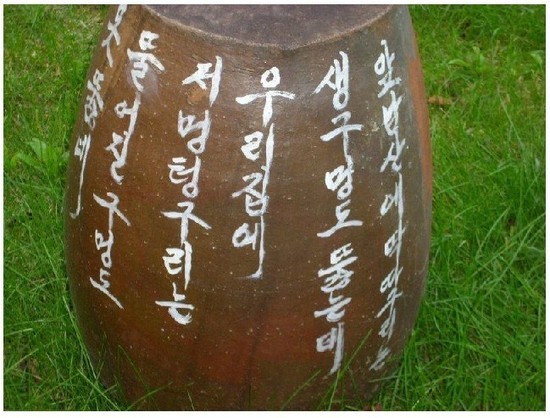 앞남산에 딱따구리는
생구멍도 뚫는데
우리집에
저 멍텅구리는
뚫어진 구멍도